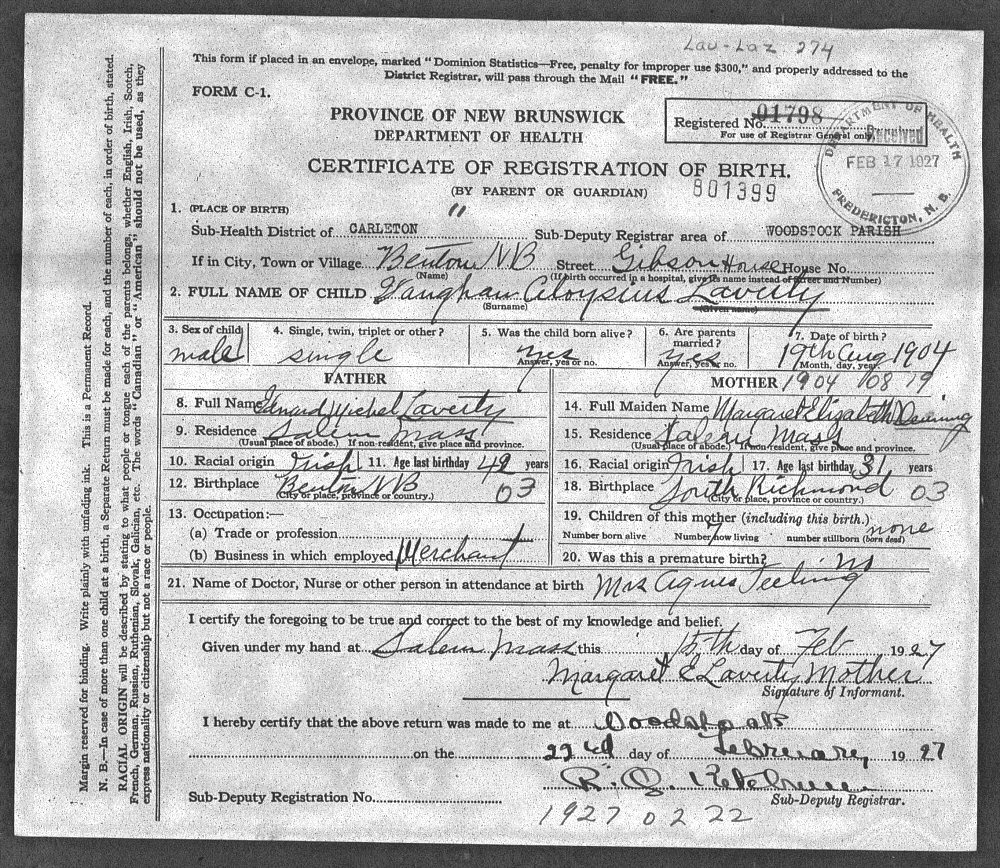 Lau-Laz 274
This form if placed in an envelope, marked "Dominion Statistics—Free, penalty for improper use $300," and properly addressed to the
District Registrar, will pass through the Mail "FREE."
FORM C-1.
PROVINCE OF NEW BRUNSWICK
DEPARTMENT OF HEALTH
Registered No. 01798
For use of Registrar General only.
DEPARTMENT OF HEALTH
Received
FEB 17 1927
FREDERICTON, N. B.
CERTIFICATE OF REGISTRATION OF BIRTH.
(BY PARENT OR GUARDIAN)
801399
1. (PLACE OF BIRTH) "
Sub-Health District of CARLETON Sub-Deputy Registrar area of WOODSTOCK PARISH
If in City, Town or Village Benton NB Street Gibson House House No.
(Name) (If birth occurred in a hospital, give its name instead of Street and Number)
2. FULL NAME OF CHILD Vaughan Aloysius Laverty
(Surname) (Given name)
3. Sex of child male
4. Single, twin, triplet or other? single
5. Was the child born alive? yes
Answer, yes or no.
6. Are parents married? yes
Answer, yes or no.
7. Date of birth? 19th Aug 1904
Month, day, year.
FATHER
MOTHER 1904 08 19
8. Full Name Edward Michel Laverty
14. Full Maiden Name Margaret Elizabeth
9. Residence Salem Mass
(Usual place of abode.) If non-resident, give place and province.
15. Residence Salem Mass
(Usual place of abode.) If non-resident, give place and province.
10. Racial origin Irish 11. Age last birthday 42 years
16. Racial origin Irish 17. Age last birthday 31 years
12. Birthplace Benton NB 03
(City or place, province or country.)
18. Birthplace South Richmond 03
(City or place, province or country.)
13. Occupation:—
(a) Trade or profession
(b) Business in which employed Merchant
19. Children of this mother (including this birth.)
Number born alive Number now living 7 number stillborn (born dead) none
20. Was this a premature birth? no
21. Name of Doctor, Nurse or other person in attendance at birth Mrs Agnes Teeling
I certify the foregoing to be true and correct to the best of my knowledge and belief.
Given under my hand at Salem Mass this 15th day of Feb 1927
Margaret E Laverty Mother
Signature of Informant.
I hereby certify that the above return was made to me at Woodstock
on the 22nd day of February, 1927
Sub-Deputy Registration No.
Sub-Deputy Registrar.
1927 02 22
Margin reserved for binding. Write plainly with unfading ink. This is a Permanent Record.
N. B.—In case of more than one child at a birth, a Separate Return must be made for each, and the number of each, in order of birth, stated.
RACIAL ORIGIN will be described by stating to what people or tongue each of the parents belongs, whether English, Irish, Scotch,
French, German, Russian, Ruthenian, Slovak, Galician, etc. The words "Canadian" or "American" should not be used, as they
express nationality or citizenship but not a race or people.